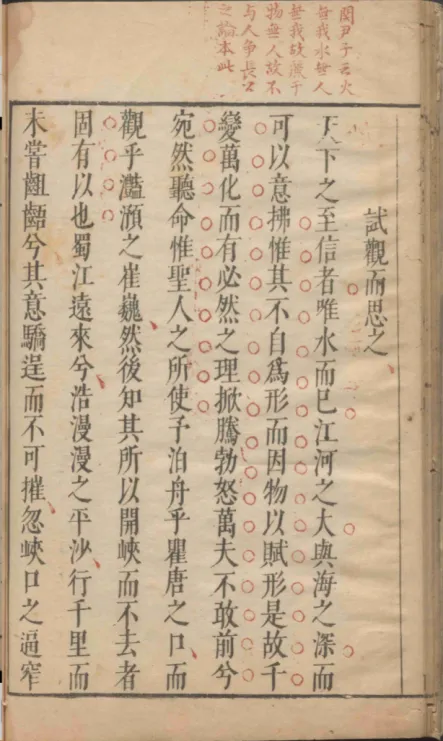 関尹子云火
無我水無人
無我故于
物無人故不
与人爭長公
之論本此
試觀而思之
天下之至信者唯水而已江河之大與海之深而
可以意揣惟其不自爲形而因物以賦形是故千
變萬化而有必然之理掀騰勃怒萬夫不敢前兮
宛然聽命惟聖人之所使予泊舟乎瞿唐之口而
觀乎灩澦之崔巍然後知其所以開峽而不去者
固有以也蜀江遠來兮浩漫漫之平沙行千里而
未嘗齟齬兮其意驕逞而不可摧忽峽口之逼窄